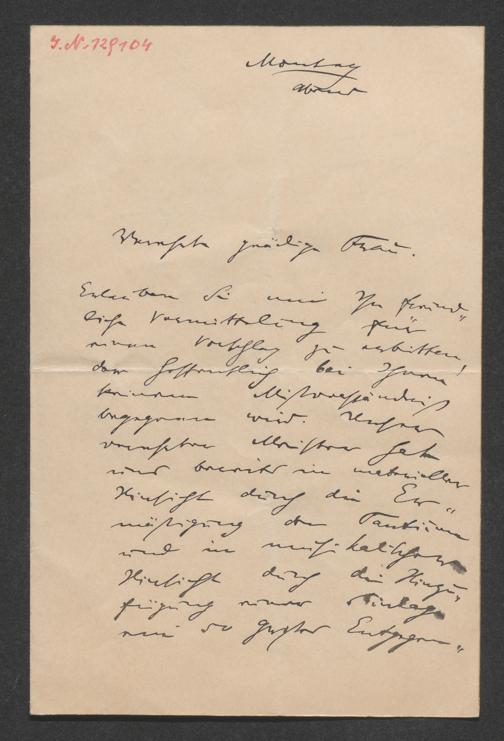 I.N. 129104
Montag
abend
Verehrte gnädige Frau.
Erlauben Sie mir Ihre freund„
liche Vermittelung für
einen Vorschlag zu erbitten,
der hoffentlich bei Ihnen
keinem Missverständniss
begegnen wird. Unser
verehrter Meister hat
uns bereits in materieller
Hinsicht durch die Er„
mässigung der Tantièmen
und in musikalischer
Hinsicht durch die Hinzu„
fügung einer Einlage
ein so großes Entgegen„